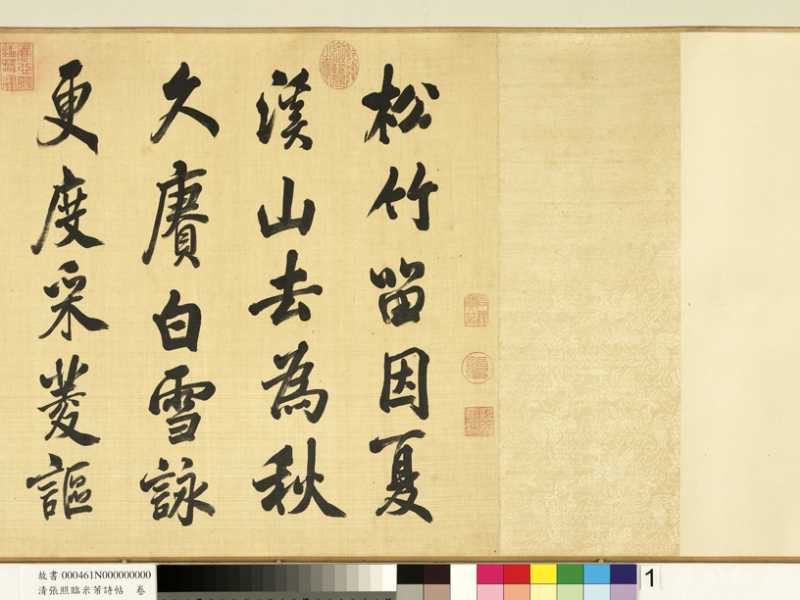 松竹留因夏
溪山去為秋
久賡白雪詠
更度采菱謳
故書 000461N000000000
清張照臨米芾詩帖 卷
1